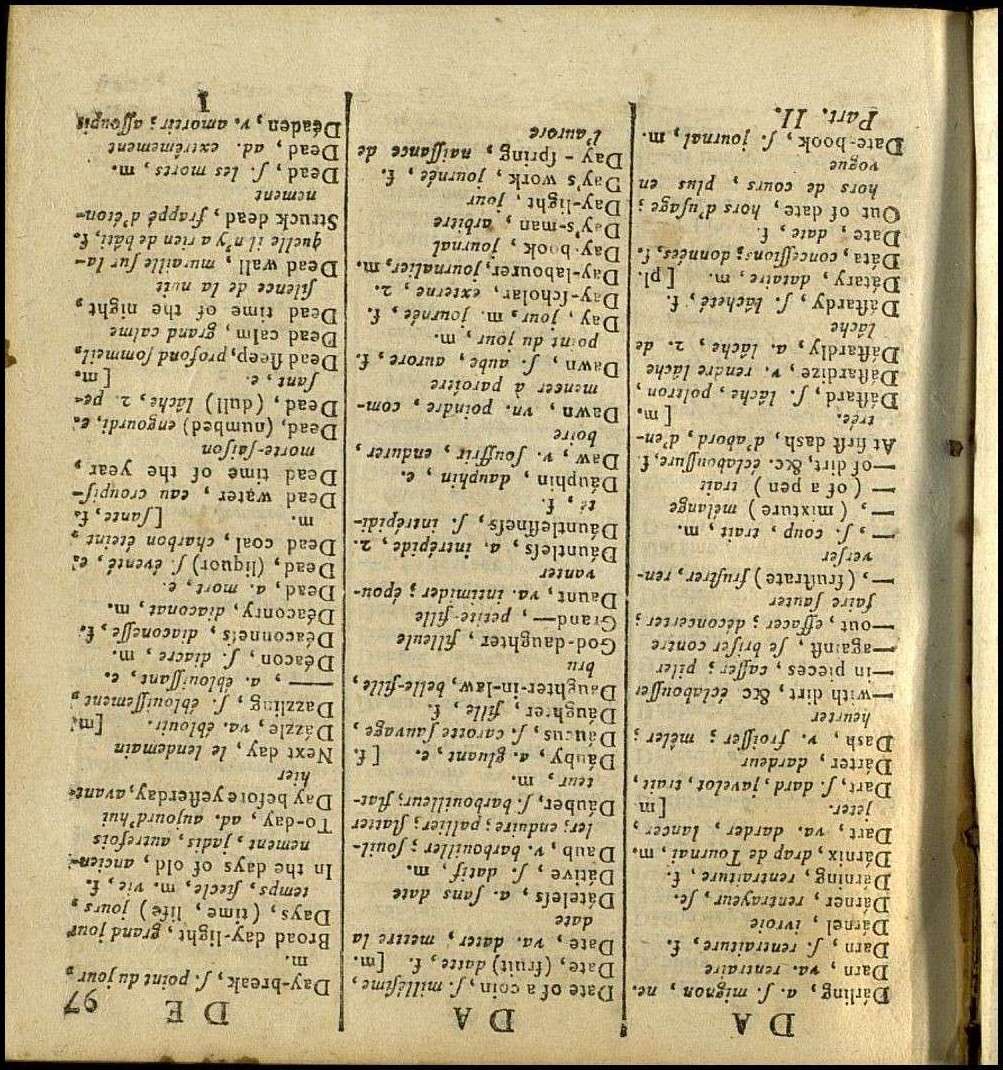 DA
DA
DE 97
Dárling, a. ſ. mignon, ne.
Darn, va. rentraire
Darn, ſ. rentraiture, f.
Dárnel, ivroie
Dárner, rentrayeur, ſe.
Darning, rentraiture, f.
Dárnix, drap de Tournai, m.
Dart, va. darder, lancer,
jeter. [m
Dart, ſ. dard, javelot, trait,
Dárter, dardeur
Dash, v. froiſſer; mêler;
heurter
—with dirt, &c éclabouſſer
—in pieces, caſſer; piler
—againſt, ſe briſer contre
—out, effacer; déconcerter;
faire ſauter
—, (fruſtrate) fruſtrer, ren-
verſer
—, ſ. coup, trait, m.
—, (mixture) mélange
— (of a pen) trait
—of dirt, &c. éclabouſſure, f.
At firſt dash, d'abord, d'en-
trée. [m.
Dáſtard, ſ. lâche, poltron,
Dáſtardize, v. rendre lâche
Dáſtardly, a. lâche, 2. de
lâche
Dáſtardy, ſ. lâcheté, f.
Dátary, dataire, m. [pl.
Dáta, conceſſions; données, f.
Date, date, f.
Out of date, hors d'uſage;
hors de cours, plus en
vogue
Date-book, ſ. journal, m.
Part. II.
Date of a coin, ſ. milléſime,
Date, (fruit) datte, f. [m.
Date, va. dater, mettre la
date
Dáteleſs, a. ſans date
Dátive, ſ. datif, m.
Daub, v. barbouiller; ſouil-
ler; enduire; pallier; flatter
Dáuber, ſ. barbouilleur; flat-
teur, m.
Dáuby, a. gluant, e. [f.
Dáucus, ſ. carotte ſauvage,
Dáughter, fille, f.
Daughter-in-law, belle-fille,
bru
God-daughter, filleule
Grand—, petite-fille
Daunt, va. intimider; épou-
vanter
Dáuntleſs, a. intrépide, 2.
Dáuntleſſneſs, ſ. intrépidi-
té, f.
Dáuphin, dauphin, e.
Daw, v. ſouffrir, endurer,
boire
Dawn, vn. poindre, com-
mencer à paroître
Dawn, ſ. aube, aurore, f.
point du jour, m.
Day, jour, m. journée, f.
Day-ſcholar, externe, 2.
Day-labourer, journalier, m.
Day-book, journal
Day's-man, arbitre
Day-light, jour
Day's work, journée, f.
Day-ſpring, naiſſance de
l'aurore
Day-break, ſ. point du jour,
m.
Broad day-light, grand jour
Days, (time, life) jours,
temps, ſiecle, m. vie, f.
In the days of old, ancien-
nement, jadis, autrefois
To-day, ad. aujourd'hui
Day before yeſterday, avant-
hier
Next day, le lendemain
Dázzle, va. éblouir. [m.
Dazzling, ſ. éblouiſſement,
——, a. éblouiſſant, e.
Déacon, ſ. diacre, m.
Déaconneſs, diaconeſſe, f.
Déaconry, diaconat, m.
Dead, a. mort, e.
Dead, (liquor) ſ. éventé, e.
Dead coal, charbon éteint,
m. [ſante, f.
Dead water, eau croupiſ-
Dead time of the year,
morte-ſaiſon
Dead, (numbed) engourdi, e.
Dead, (dull) lâche, 2. pe-
ſant, e. [m.
Dead ſleep, profond ſommeil,
Dead calm, grand calme
Dead time of the night,
ſilence de la nuit
Dead wall, muraille ſur la-
quelle il n'y a rien de bâti, f.
Struck dead, frappé d'éton-
nement
Dead, ſ. les morts, m.
Dead, ad. extrêmement
Déaden, v. amortir; aſſoupir
I